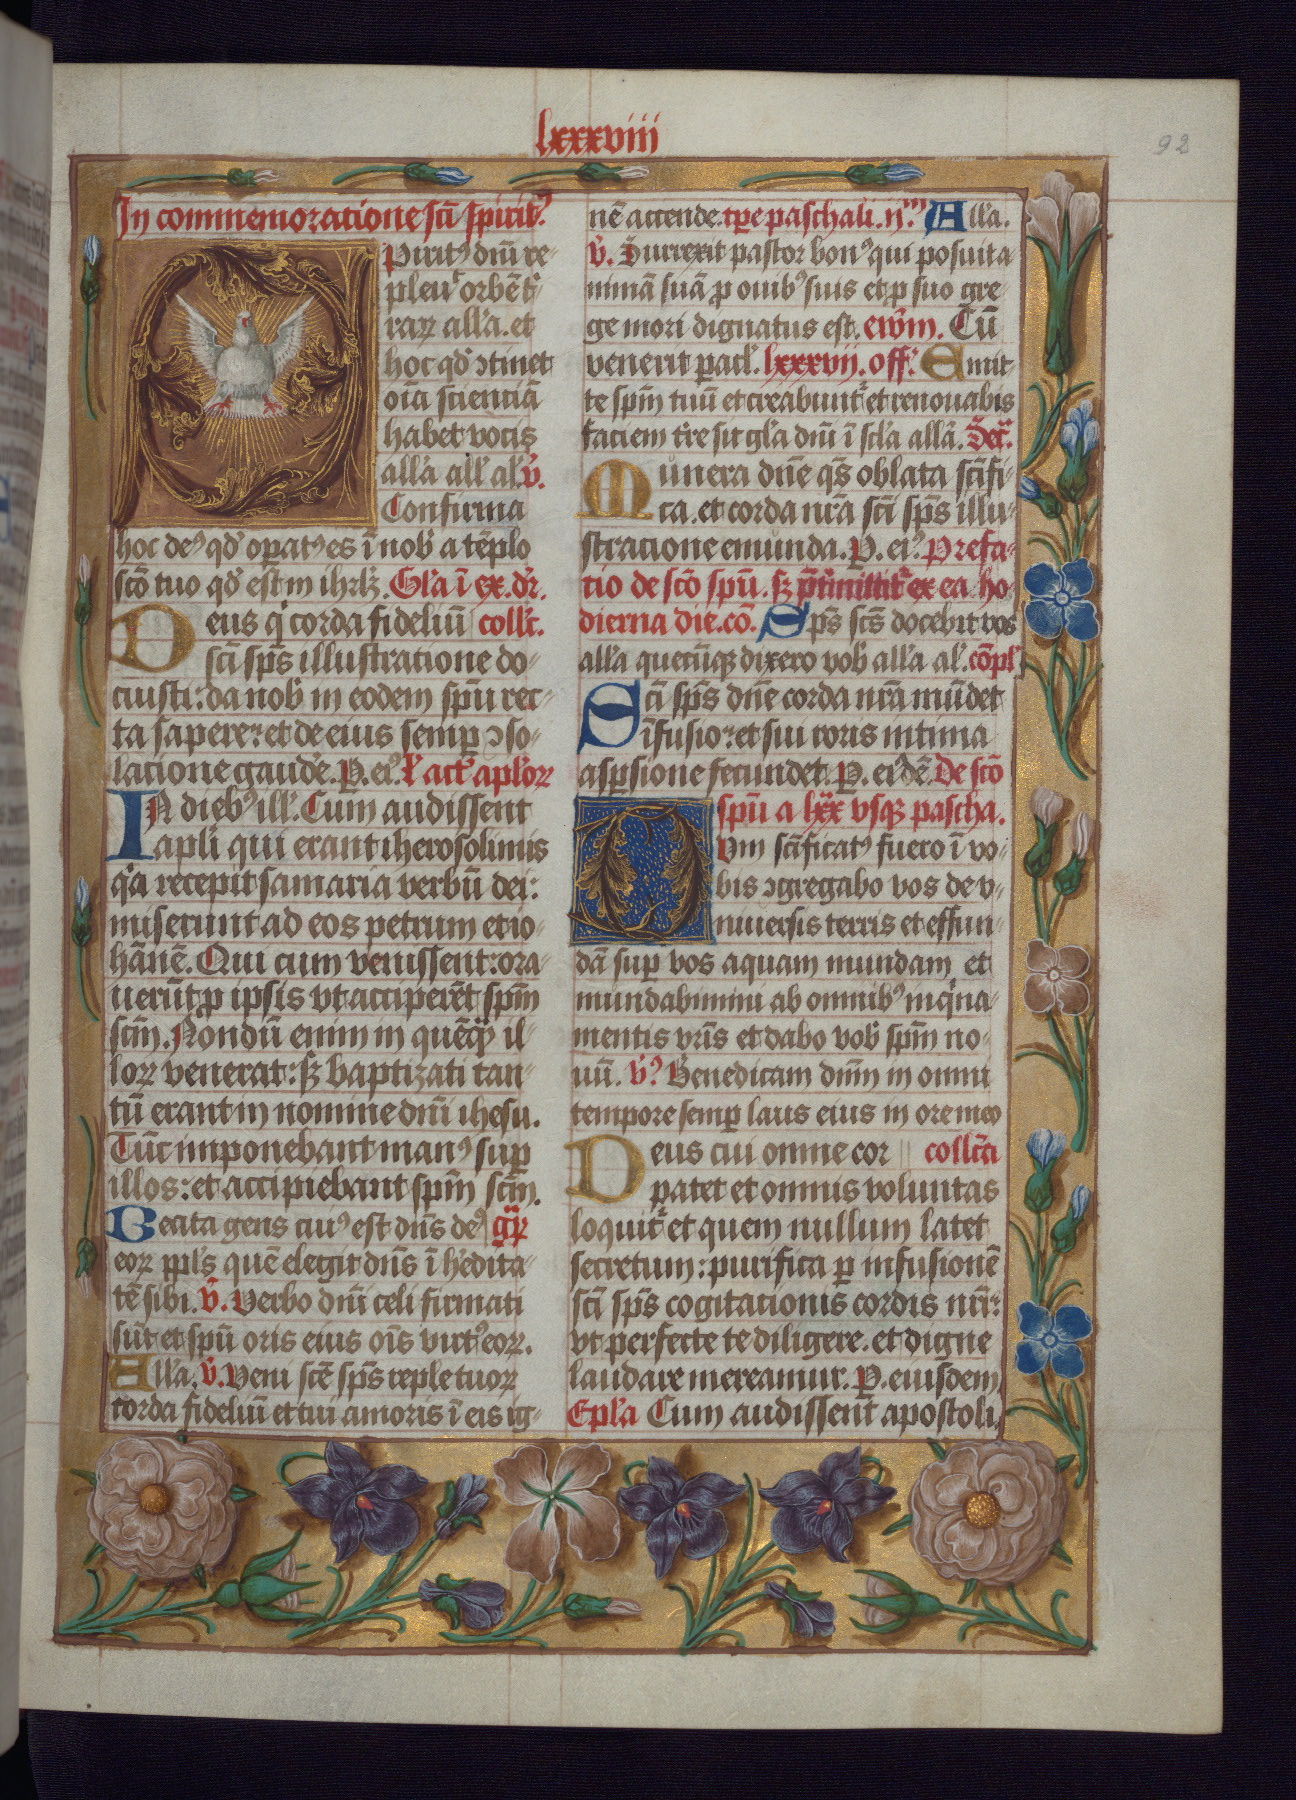 lxxxviii
92
In commemoratione sc̄i spirit⁹
Pirit⁹ dn̄i re-
pleuꝰ orbē t̄r-
raꝝ all'a. et
hoc qd' ↄtinet
oīa scientiā
habet vocis
all'a all' al'. v̄.
Confirma
hoc de⁹ qd' oꝑat⁹ es ī nob' a tēplo
scō tuo qd' est in ihrl'ꝫ. Gl'a ī ex. dr̄.
Deus q' corda fideliū coll'c.
sc̄i sp̄s illustratione do-
cuisti: da nob' in eodem sp̄u rec-
ta sapere: et de eius semꝑ ↄso-
latione gaude'. P. ei⁹. l' act' apl'oꝝ
In dieb⁹ ill'. Cum audissent
apl'i qui erant iherosolimis
q'a recepit samaria verbū dei:
miserunt ad eos petrum et io-
hānē. Qui cum venissent: ora-
uerūt ꝓ ipsis vt acciperēt sp̄m
sc̄m. Nondū enim in quēqꝫ il-
loꝝ venerat: sꝫ baptizati tan-
tū erant in nomine dn̄i ihesu.
Tūc imponebant man⁹ suꝑ
illos: et accipiebant sp̄m sc̄m.
Beata gens cui⁹ est dn̄s de⁹ gr̄
eoꝝ ppl's quē elegit dn̄s ī h'edita-
tē sibi. v̄. Verbo dn̄i celi firmati
sūt et sp̄u oris eius oīs virt⁹ eoꝝ.
All'a. v̄. Veni scē sp̄s reple tuoꝝ
corda fideliū et tui amoris ī eis ig-
nē accende. tꝑe paschali. All'a.
v̄. Surrexit pastor bon⁹ qui posuit a
nimā suā ꝓ ouib⁹ suis et ꝓ suo gre-
ge mori dignatus est. ew̄m. Cū
venerit pacl'. lxxxvii. off'. Emit-
te sp̄m tuū et creabunt' et renouabis
faciem t're sit gl'a dn̄i ī scl'a all'a. Secr̄.
Munera dn̄e q̄s oblata sc̄ifi-
ca. et corda nr̄a sc̄i sp̄s illu-
stratione emunda. P. ei⁹. Prefa-
tio de scō sp̄u. sꝫ p̄t'mittit' ex ea ho-
dierna die. cō. Sp̄s sc̄s docebit vos
all'a quecūqꝫ dixero vob' all'a al'. cōpl'
Sc̄i sp̄s dn̄e corda nr̄a mūdet
īfusio: et sui roris intima
asꝑsione fecundet. P. ei⁹dē. De scō
sp̄u a lxx vsqꝫ pascha.
Cvm sc̄ificat⁹ fuero ī vo-
bis ↄgregabo vos de v-
niuersis terris et effun-
dā suꝑ vos aquam mundam et
mundabimini ab omnib⁹ inq'na-
mentis vr̄is et dabo vob' sp̄m no-
uū. v̄. Benedicam dn̄m in omni
tempore semꝑ laus eius in ore meo
Deus cui omne cor collc̄a
patet et omnis voluntas
loquit' et quem nullum latet
secretum: purifica ꝑ infusionē
sc̄i sp̄s cogitationis cordis nr̄i:
vt perfecte te diligere. et digne
laudare mereamur. P. eiusdem
Epl'a Cum audissent apostoli.